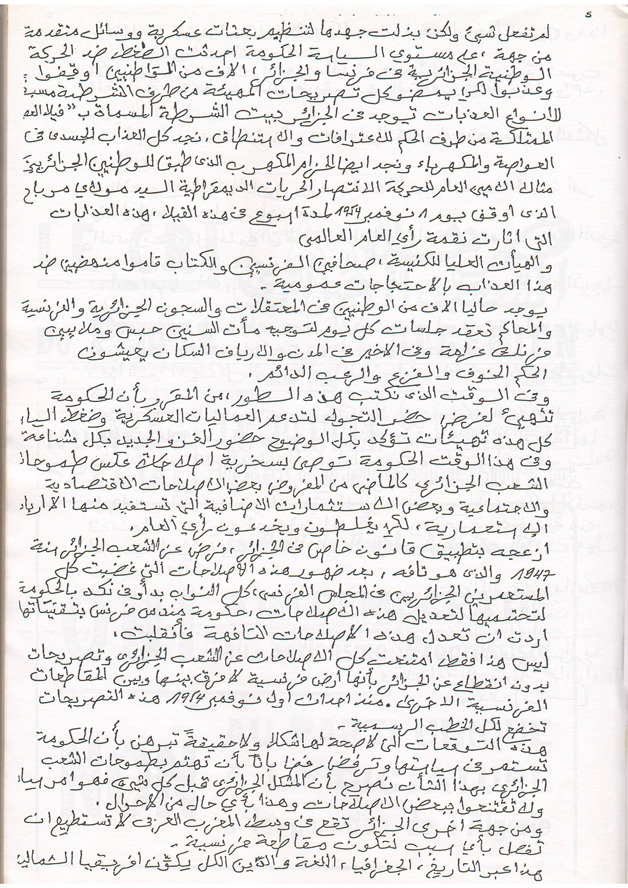 5
لم تفعل شيئ ولكن بذلت جهدها لتنظيم بعثات عسكرية ووسائل متقدمة
من جهة، على مستوى السياسة الحكومة احدثت الضغط ضد الحركة
الوطنية الجزائرية في فرنسا والجزائر، الاف من المواطنين أوقفوا
وعذبوا لكي يمضو كل تصريحات المهيئة من طرف الشرطة
لأنواع العذابات تيوجد في الجزائر بيت الشرطة المسماة ب "فيلا
الممتلكة من طرف الحكم للاعترافات والاستنطاق، نجد كل العذاب الجسدي في
الغواصة والكهرباء ونجد ايضا الحزام المكهرب الذي طبق للوطنيين الجزائريين
مثاله الامين العام للحركة الانتصار الحريات الديمقراطية السيد مولاي مرباح
الذي اوقف يوم 1 نوفمبر 1954 لمدة اسبوع في هذه الفيلا، هذه العذابات
التي اثارت نقمة رأي العام العالمي
والهيأت العليا للكنيسة، صحافيين الفرنسيين والكتاب قاموا منهضين ضد
هذا العذاب بالاحتجاجات عمومية.
يوجد حاليا الاف من الوطنيين في المعتقلات والسجون الجزائرية والفرنسية
والمحاكم تعقد جلسات كل يوم لتوجيه مأت السنين حبس وملايين
فرنك غرامة وفي الاخير في المدن والارياف السكان يعيشون
الحكم الخوف والفزع والرعب الدائم.
وفي الوقت الذي نكتب هذه السطور، من المقرر بأن الحكومة
تتهيئ لفرض حضور التحولة لتدعم العماليات العسكرية وضغط
كل هذه تهييئات تؤكد بكل الوضوح حضور الغزو الجديد بكل
وفي هذا الوقت الحكومة توصي بسخرية اصلاحات عكس طموحات
الشعب الجزائري كالماضي من المفروض بعض الاصلاحات الاقتصادية
والاجتماعية وبعض الاستثمارات الاضافية التي تستفيد منها
الاستعمارية، لكي يغلطون ويخدعون رأي العام.
ازعجه بتطبيق قانون خاص في الجزائر، فرض عن الشعب الجزائري سنة
1947 والذي هو تافه، بعد ضهور هذه الاصلاحات التي غضبت كل
المستعمرين الجزائريين في المجلس الفرنسي، كل النواب بدأو في
لتحتميها لتعديل هذه الاصلاحات، حكومة منداس فرنس
اردت ان تعدل هذه الاصلاحات التافهة فأنقلبت.
ليس هذا فقط امتنعت كل الاصلاحات عن الشعب الجزائري وتصريحات
بدون انقطاع عن الجزائر بأنها ارض فرنسية لا فرق بينها وبين المقاطعات
الفرنسية الاخرى. منذ احداث اول نوفمبر 1954 هذه التصريحات
تخضع لكل الخطب الرسمية.
هذه التوقعات التي لا صحة لها شكلا ولا حقيقة تبرهن بأن الحكومة
تستمر في سياستها وترفض رفضا باتا بأن تهتم بطموحات الشعب
الجزائري بهذا الشأن نصرح بأن المشكل الجزائري قبل كل شيئ فهو
ولا تقنعوا ببعض الاصلاحات وهذا بأي حال من الاحوال.
ومن جهة اخرى الجزائر تقع في وسط المغرب العربي لا تستطيع ان
تفصل بأي سبب لتكون مقاطعة فرنسية.
هذا عبر التاريخ، الجغرافيا، اللغة والدين الكل يكون افريقيا الشمالية